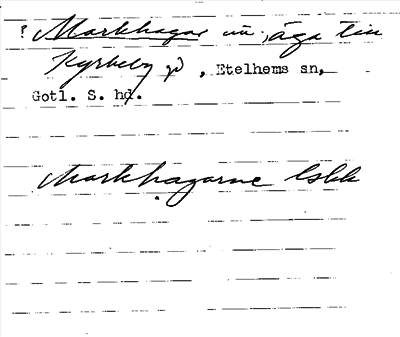 ? Markhagar nu äga till
Kyrkeby gd, Etelhems sn,
Gotl. S. hd.
Markhagarne